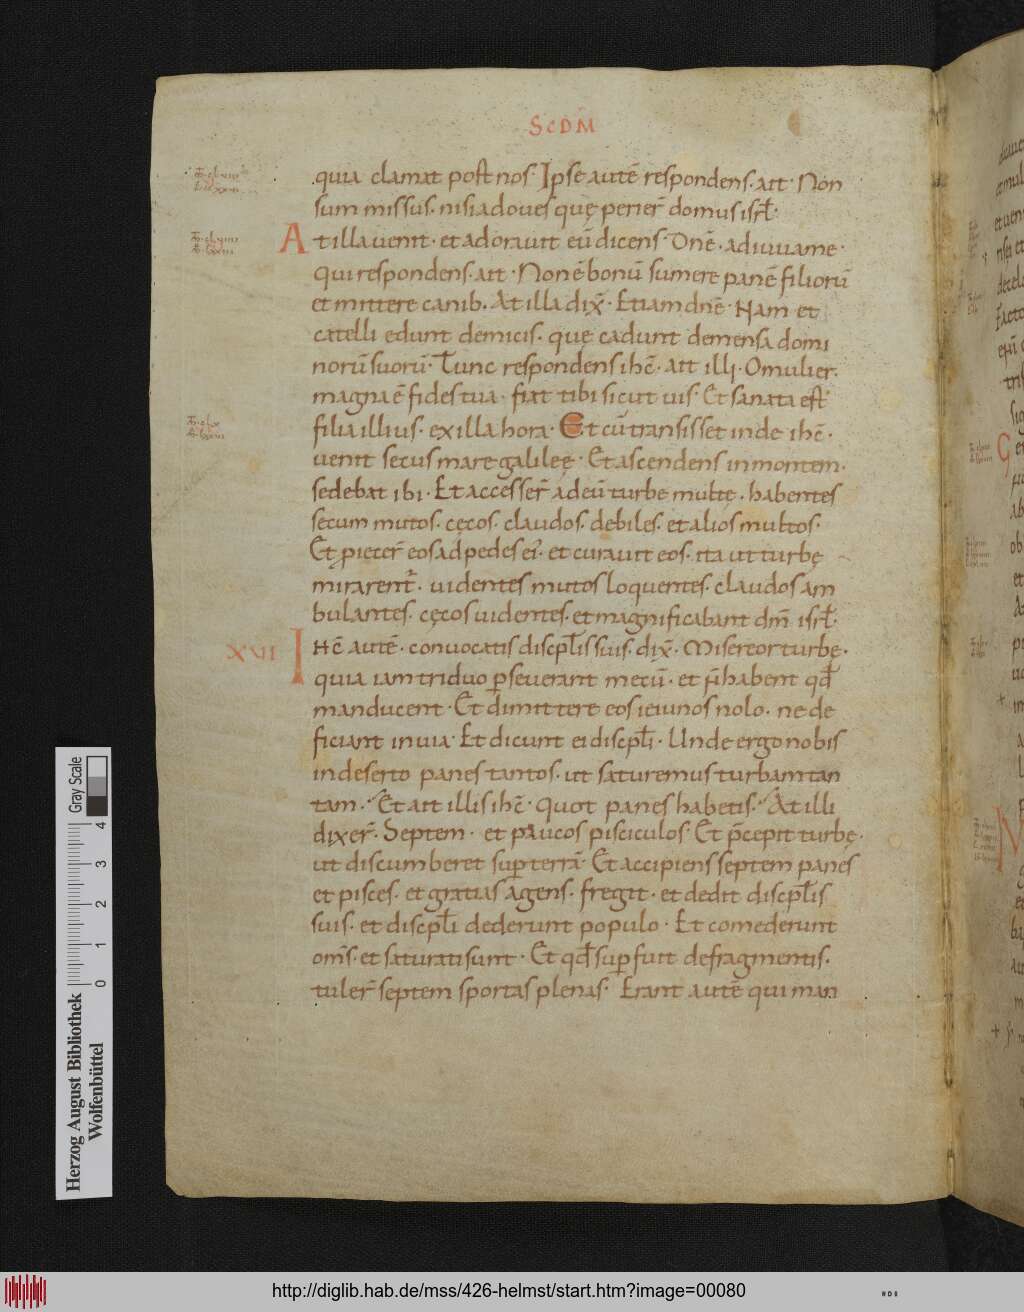 SCDM̄
quia clamat post nos. Ipse autē respondens. ait. Non
sum missus. nisi ad oues quę perier̄ domus isrl̄.
At illa uenit. et adorauit eū dicens. Dnē. adiuua me.
qui respondens. ait. Non ē bonū sumere panē filiorū
et mittere canib. At illa dix̄. Etiam dnē. Nam et
catelli edunt de micis. que cadunt de mensa domi
norū suorū. Tunc respondens ihc̄. ait illi. O mulier.
magna ē fides tua. fiat tibi sicut uis. Et sanata est
filia illius. ex illa hora. Et cū transisset inde ihc̄.
uenit secus mare galileę. Et ascendens in montem.
sedebat ibi. Et accesser̄ ad eū turbe multę. habentes
secum mutos. cęcos. claudos. debiles. et alios multos.
Et ꝓiecer̄ eos ad pedes ei᾽. et curauit eos. ita ut turbę
mirarent᷑. uidentes mutos loquentes. claudos am
bulantes. cęcos uidentes. et magnificabant dm̄ isrl̄.
XVI Ihc̄ autē. conuocatis discipl̄is suis. dix̄. Misereor turbę.
quia iam triduo ꝑseuerant mecū. et n̄ habent qd̄
manducent. Et dimittere eos ieiunos nolo. ne de
ficiant in uia. Et dicunt ei discipl̄i. Unde ergo nobis
in deserto panes tantos. ut saturemus turbam tan
tam. Et ait illis ihc̄. quot panes habetis. At illi
dixer̄. Septem. et paucos pisciculos. Et p̄cepit turbę.
ut discumberet suꝑ terrā. Et accipiens septem panes
et pisces. et gratias agens. fregit. et dedit discipl̄is
suis. et discipl̄i dederunt populo. Et comederunt
om̄s. et saturati sunt. Et qd̄ suꝑfuit de fragmentis.
tuler̄ septem sportas plenas. Erant autē qui man
Herzog August Bibliothek
Wolfenbüttel
0 1 2 3 4
Gray Scale
http://diglib.hab.de/mss/426-helmst/start.htm?image=00080